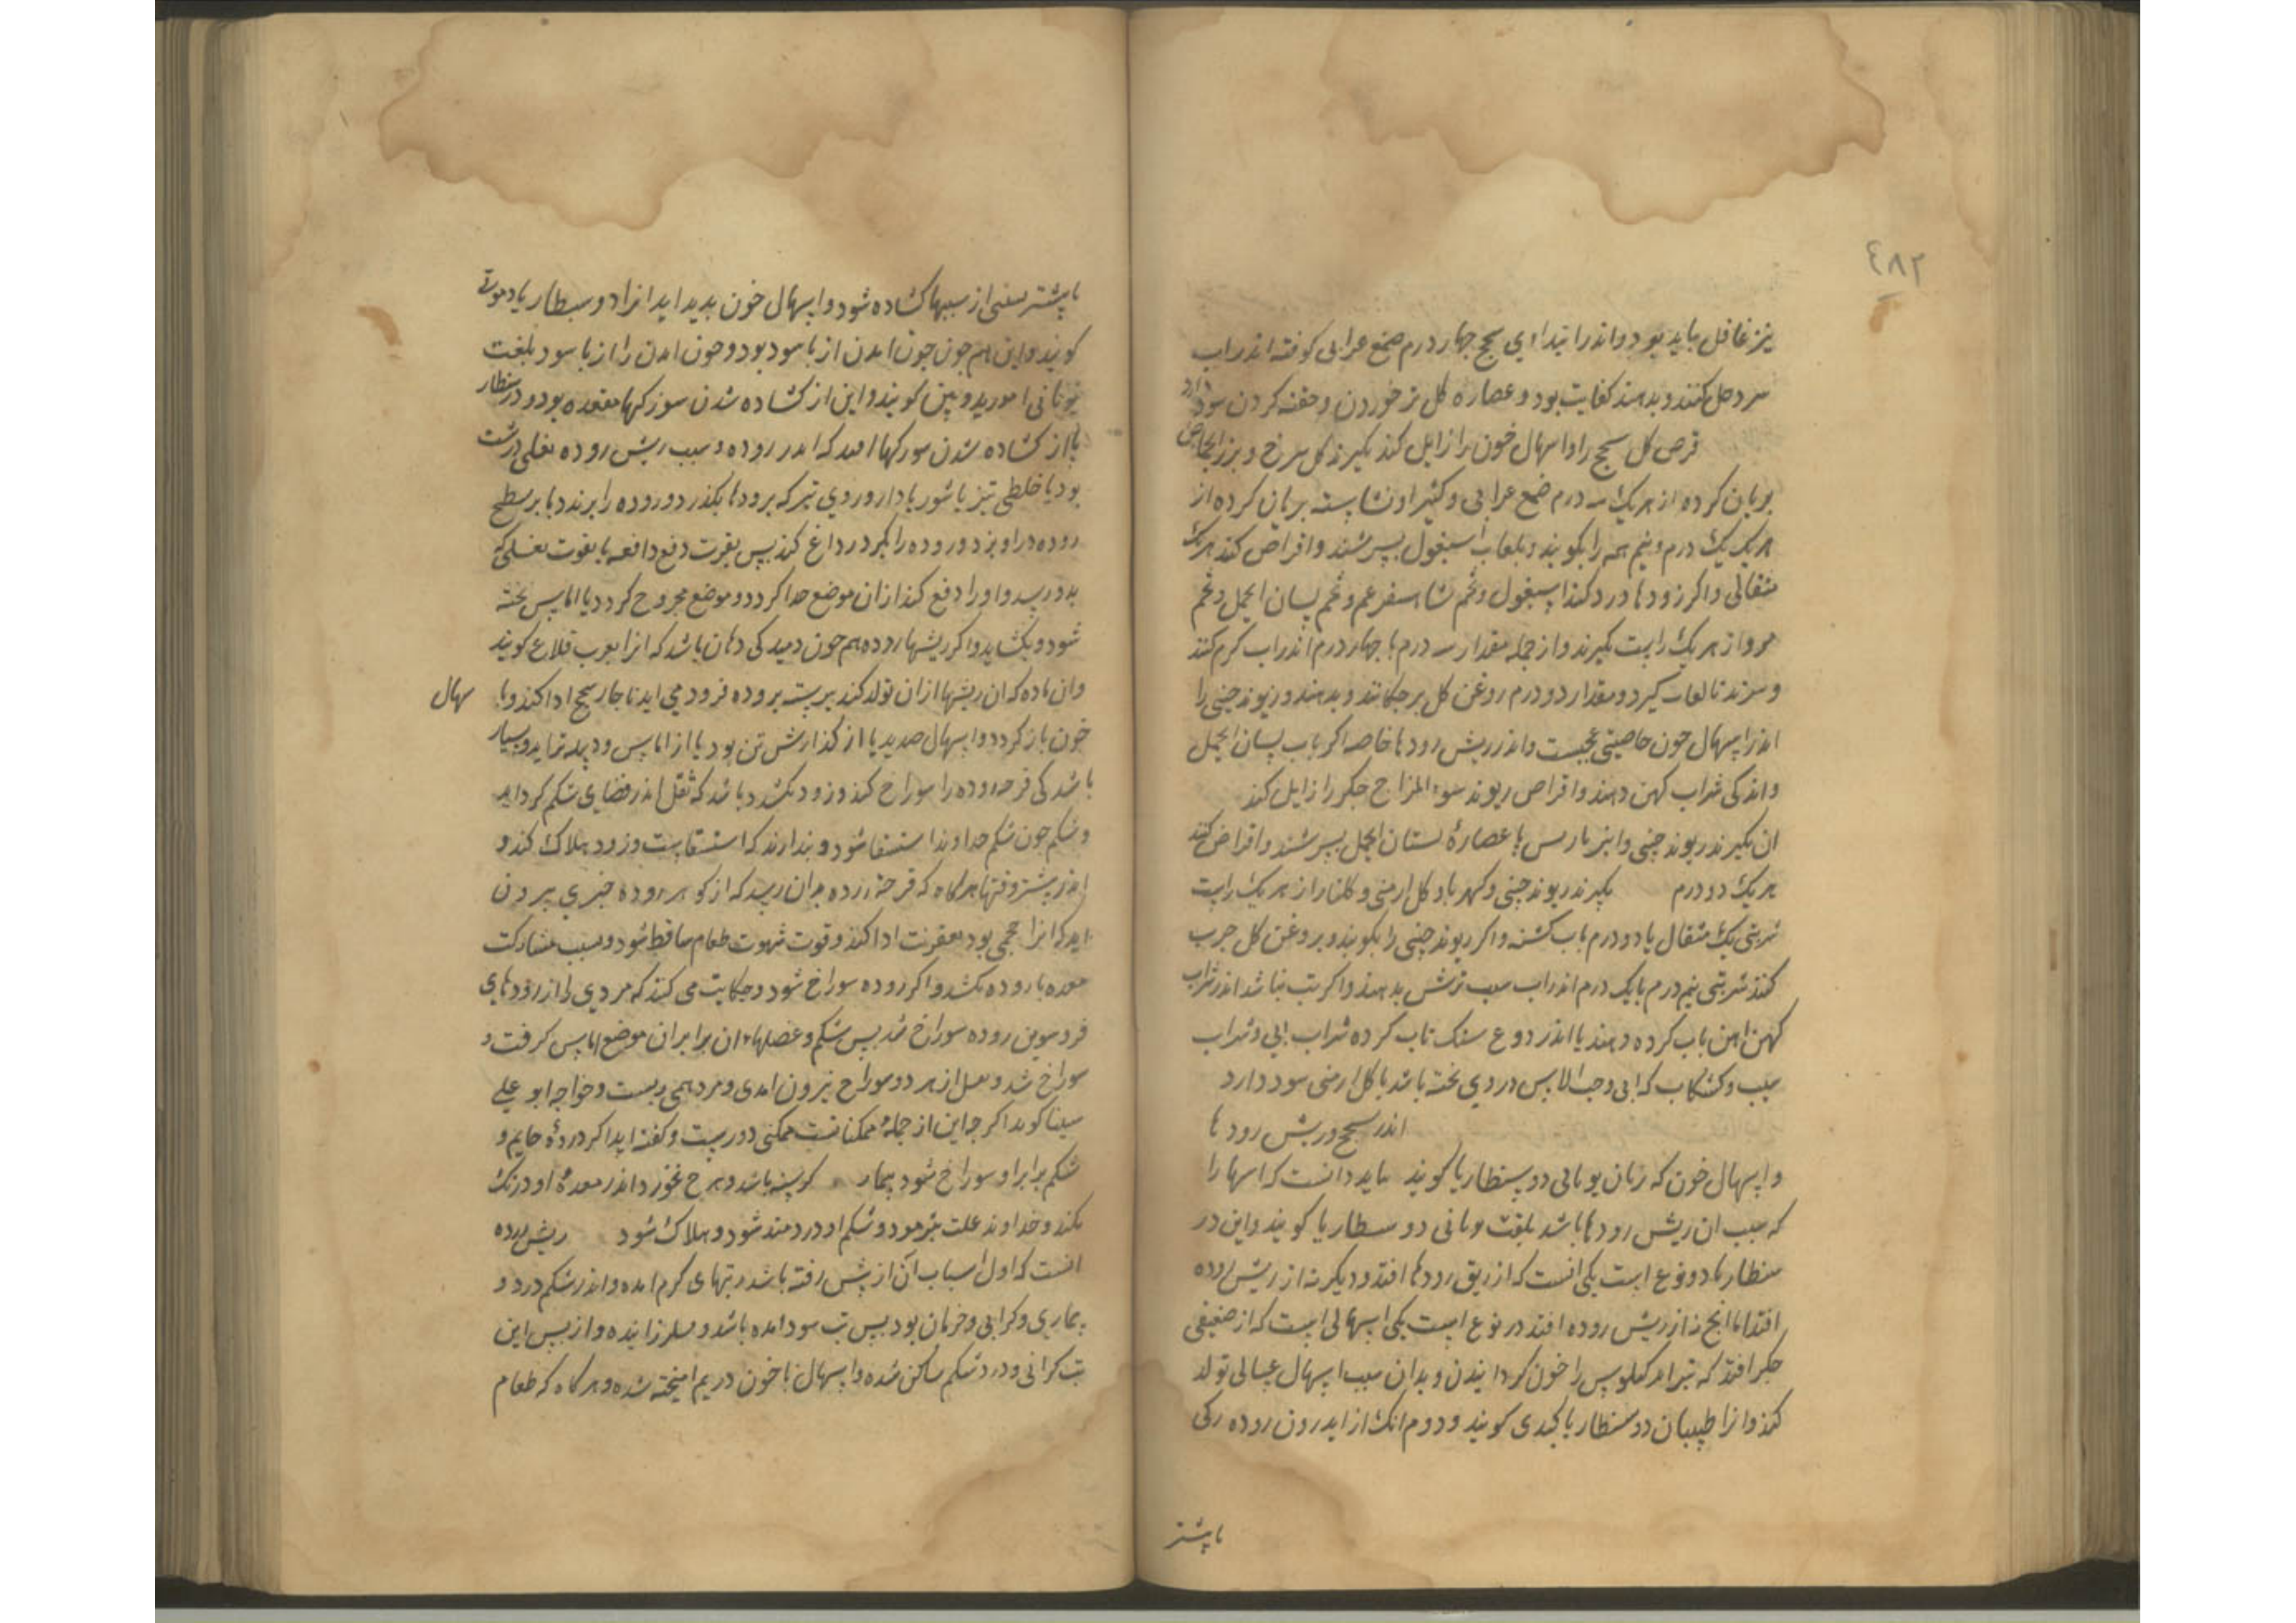 ٤٨٢
نیز غافل باید بود و اندر ابتداءی سحج چهار درم صمغ عرابی کوفته اندر اب
سرد حل کنند و بدهند کفایت بود و عصاره کل تر خوردن و حقنه کردن سود دارد
قرص کل سحج را و اسهال خون را زایل کند بکیرند کل سرخ و بزر الحماض
بریان کرده از هر یک سه درم صمغ عرابی و کثیرا و نشاسته بریان کرده از
هر یک یک درم و نیم همه را بکوبند و بلعاب اسبغول بسرشند و اقراص کنند هر یک
مثقالی و اکر رودها درد کند اسبغول و تخم شاهسفرغم و تخم لسان الحمل و تخم
مرو از هر یک راست بکیرند و از جمله مقدار سه درم یا چهار درم اندر اب کرم کنند
و بزنند تا لعاب کیرد و مقدار دو درم روغن کل برچکانند و بدهند و ریوند چینی را
اندر اسهال خون خاصیتی عجیبست و اندر ریش رودها خاصه اکر باب لسان الحمل
و اندکی شراب کهن دهند و اقراص ریوند سوء المزاج جکر را زایل کند
ان بکیرند ریوند چینی و انبرباریس با عصارهٔ لسان الحمل بسرشند و اقراص کنند
هر یک دو درم بکیرند ریوند چینی و کهربا و کل ارمنی و کلنار از هر یک راست
شربتی یک مثقال یا دو درم باب کشنه و اکر ریوند چینی را بکوبند و بروغن کل چرب
کنند شربتی نیم درم یا یک درم اندر اب سیب ترش بدهند و اکر تب نباشد اندر شراب
کهن اهن تاب کرده دهند یا اندر دوغ سنک تاب کرده شراب ابی و شراب
سیب و کشکاب که ابی و حب الاس در وی پخته باشد با کل ارمنی سود دارد
اندر سحج و ریش رودها
و اسهال خون که زبان یونانی دوسنطاریا کویند باید دانست که اسهال را
که سبب ان ریش رودها باشد بلغت یونانی دوسنطاریا کویند و این دو
سنطاریا دو نوع است یکی انست که از ریق رودها افتد و دیکر نه از ریش روده
افتد اما انچ نه از ریش روده افتد دو نوع است یکی اسهالی است که از ضعیفی
جکر افتد که نتواند کیلوس را خون کردانیدن و بدان سبب اسهال غسالی تولد
کند و انرا طبیبان دوسنطاریا کبدی کویند و دوم انک از اندرون روده رکی
یا بیشتر
یا بیشتر بسببی از سببها کشاده شود و اسهال خون بدید اید انرا دوسنطاریا دموی
کویند و این هم چون خون امدن از باسور بود و خون امدن را از باسور بلغت
یونانی امورویدوس کویند و این از کشاده شدن سر رکهاء مقعده بود و دوسنطار
یا از کشاده شدن سر رکها افتد که اندر روده و سبب ریش روده ثفلی درشت
بود یا خلطی تیز یا شور یا داروء وی تیز که برودها بکذرد و روده را برندد یا بر سطح
روده دراویزد و روده را بکیرد و داغ کند بس بقوت دفع دافعه یا بقوت ثفلی که
بدو رسد و او را دفع کند از ان موضع جدا کردد و موضع مجروح کردد یا اماس پخته
شود و بکشاید و اکر ریشهاء روده هم چون دمیدکی دهان باشد که انرا بعرب قلاع کویند
وان ماده که ان ریشها از ان تولد کند بیوسته بروده فرود می اید ناچار سحج ادا کند و با سهال
خون باز کردد و اسهال صدید یا از کذارش تن بود یا از اماس و دبیله ترابد و بسیار
باشد کی قرحه روده را سوراخ کند و زود بکشد و باشد که ثفل اندر فضای شکم کرد اید
و شکم چون شکم خداوند استسقا شود و بندارند که استسقاست و زود هلاک کند و
اندر بیشتر وقتها هر کاه که قرحهٔ روده بدان رسد که از کوهر روده چیزی بیرون
اید که انرا حجمی بود بعفونت ادا کند و قوت شهوت طعام ساقط شود و سبب مشارکت
معده با روده بکشد و اکر روده سوراخ شود و حکایت می کنند که مردی را از رودهای
فرودین روده سوراخ شد بس شکم و عضلهاء ان برابر ان موضع اماس کرفت و
سوراخ شد و ثفل از هر دو سوراخ بیرون امدی و مرد همی زیست و خواجه ابو علی
سینا کوید اکر چه این از جملهٔ ممکناتست ممکنی دورست و کفته اید اکر رودهٔ صایم و
شکم برابر او سوراخ شود بیمار کرسنه باشد و هر چ خورد اندر معدهٔ او درنک
نکند و خداوند علت بژمرد و شکم او دردمند شود و هلاک شود ریش روده
انست که اول اسباب آن از بیش رفته باشد و تبهای کرم امده و اندر شکم درد و
بیماری و کرانی و خزمان بود بس تب سود امده باشد و بلرزانیده و از بس این
تب کرانی و درد شکم ساکن شده و اسهال با خون و ریم امیخته شده و هر کاه که طعام